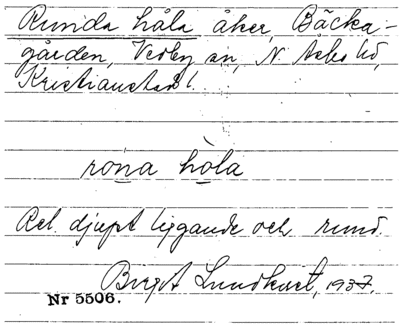 Runda håla åker, Bäcka-
gården, Verby sn, N. Åsbo hd,
Kristianstad l.
rona hola
Rel. djupt liggande och rund.
Birgit Lundkvist, 1937.
Nr 5506.